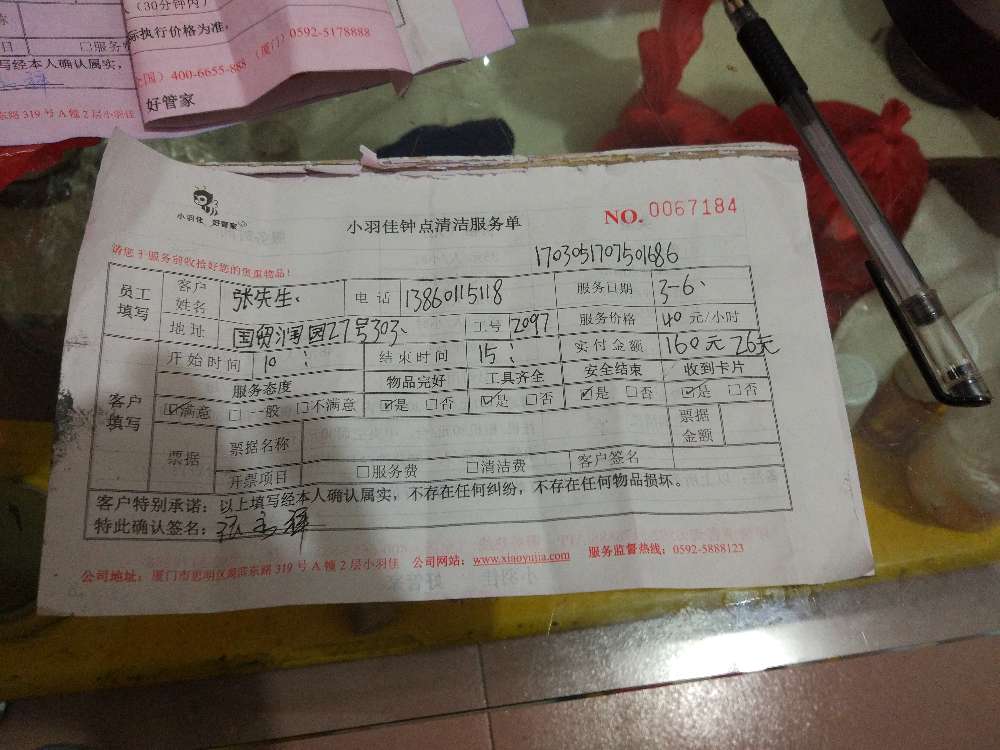 (30分钟内)
际执行价格为准,
(厦门) 0592-5178888
400-6655-888
好管家
目 □服务费
写经本人确认属实,
东路 319 号 A 幢 2 层小羽佳
小羽佳 好管家
小羽佳钟点清洁服务单
NO. 0067184
1703051707501686
请您于服务前收拾好您的贵重物品!
员工填写 客户姓名 张先生、 电话 13860115118 服务日期 3-6、
地址 国贸润园27号303、 工号 2097 服务价格 40 元/小时
开始时间 10: 结束时间 15: 实付金额 160元 26元
客户填写 服务态度 物品完好 工具齐全 安全结束 收到卡片
☑满意 □一般 □不满意 ☑是 □否 ☑是 □否 ☑是 □否 ☑是 □否
票据 票据名称 票据金额
开票项目 □服务费 □清洁费 客户签名
客户特别承诺:以上填写经本人确认属实,不存在任何纠纷,不存在任何物品损坏。
特此确认签名:
公司地址:厦门市思明区湖滨东路 319 号 A 幢 2 层小羽佳 公司网站:www.xiaoyujia.com 服务监督热线:0592-5888123